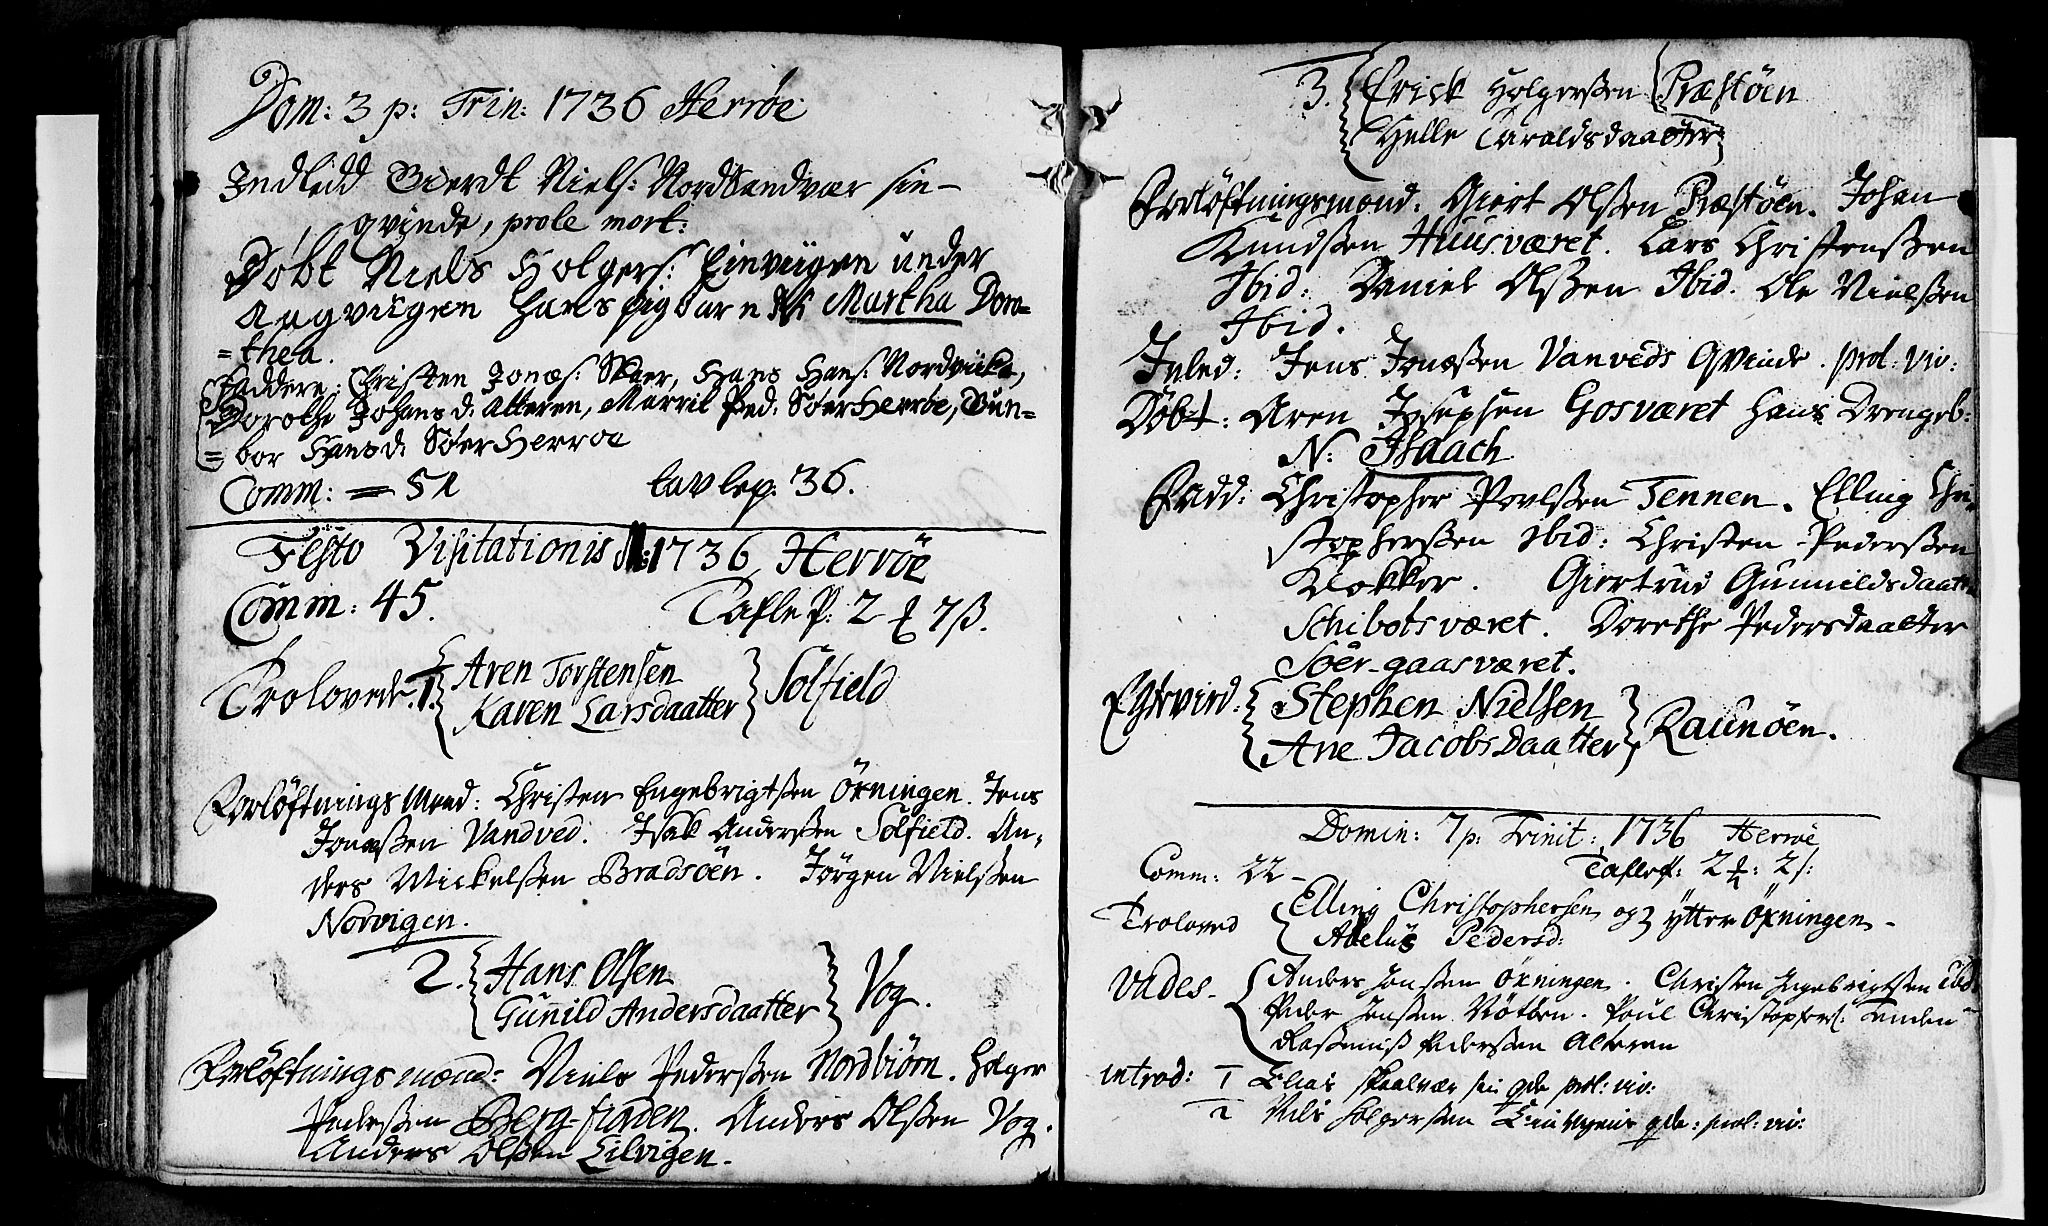 Dom: 3 p: Trin: 1736 Herrøe
Indledd Gierdt Niels: Nord Sandvær sin
qvinde, prole mort:
Døbt Niels Holgers: Einviigen under
Aagviigen hans pigbarn Martha Doro=
=thea.
Faddere: Christen Jonæs: Skaer, Hans Hans: Nordviika,
Dorothe Johans d: Alteren, Marrit Ped: SøerHerrøe, Gun=
=bor Hans d: SøerHerroe
Comm: = 51 tavlep: 36.
Festo Visitationis M: 1736 Herrøe
Comm: 45. Tafle P: 2 ƶ 7 ß.
Trolovede. 1. Aren Torstensen
Karen Larsdaatter Sølfield
Forløftnings Mend: Christen Engebrigtßen Öxningen. Jens
Jonæßen Vandved. Isak Anderßen Sølfield. An,
ders Mickelßen Bradsøen. Jörgen Nielßen
Norvigen.
2. Hans Olsen
Gunild Andersdaatter Vog.
Forløftnings mænd: Niels Pederßen Nordbiörn. Holger
Pederßen Berg-fiaden. Anders Olßen Vog.
Anders Olßen Lilvigen.
3. Erick Holgerßen Præstøen
Helle Taraldsdaatter
Forløftningsmænd. Giert Olßen Præstöen. Johan
Knudßen Huusværet. Lars Christenßen
Ibid: Daniel Olßen Ibid. Ole Nielßen
Ibid.
Inled: Jens Jonæßen Vanveds Qvinde. prol: viv:
Døbt: Aren Josephsen Gosværet hans Drengeb:
N: Isaach
Fadd: Christopher Povlßen Tennen. Elling Chri-
stopherßen Ibid: Christen Pederßen
Klokker. Giertrud Gunnildsdaatter
Schibotsværet. Dorethe Pedersdaatter
Söer-gaasværet.
Egtevied. Stephen Nielsen
Ane Jacobsdaatter Raunöen.
Domin: 7 p: Trinit: 1736 Herröe
Comm: 22 – Taflepf: 2 ƶ: 2 s:
Troloved Elling Christophersen og Ytter Öxningen –
Abelus Pedersd:
Vades – Anders Jonßen Öxningen. Christen Ingebrigtßen Ibd:
Peder Jenßen Nötöen. Poul Christophers: Tenden
Raßmuß Pederßen Alteren
introd: 1 Elias Skaalvær sin qde prol: viv:
2 Nils Holgerßen qde: prol: viv: